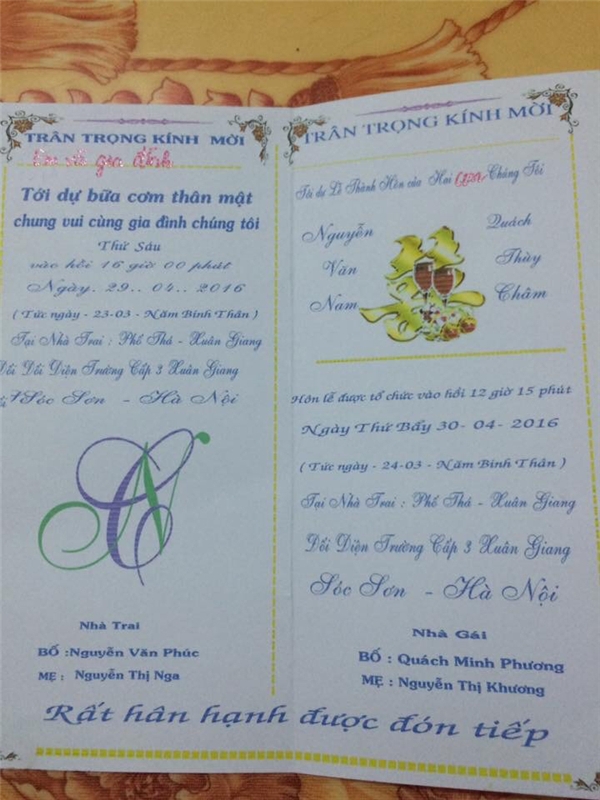 TRÂN TRỌNG KÍNH MỜI
gia đình
Tới dự bữa cơm thân mật
chung vui cùng gia đình chúng tôi
Thứ Sáu
vào hồi 16 giờ 00 phút
Ngày. 29.. 04.. 2016
( Tức ngày - 23-03 - Năm Bính Thân )
Tại Nhà Trai : Phố Thá - Xuân Giang
Đối Diện Trường Cấp 3 Xuân Giang
Sóc Sơn - Hà Nội
CN
Nhà Trai
BỐ :Nguyễn Văn Phúc
MẸ : Nguyễn Thị Nga
TRÂN TRỌNG KÍNH MỜI
Tới dự Lễ Thành Hôn của Hai Chúng Tôi
Nguyễn
Văn
Nam
Quách
Thùy
Châm
Hôn lễ được tổ chức vào hồi 12 giờ 15 phút
Ngày Thứ Bẩy 30- 04- 2016
( Tức ngày - 24-03 - Năm Bính Thân )
Tại Nhà Trai : Phố Thá - Xuân Giang
Đối Diện Trường Cấp 3 Xuân Giang
Sóc Sơn - Hà Nội
Nhà Gái
BỐ : Quách Minh Phương
MẸ : Nguyễn Thị Khương
Rất hân hạnh được đón tiếp